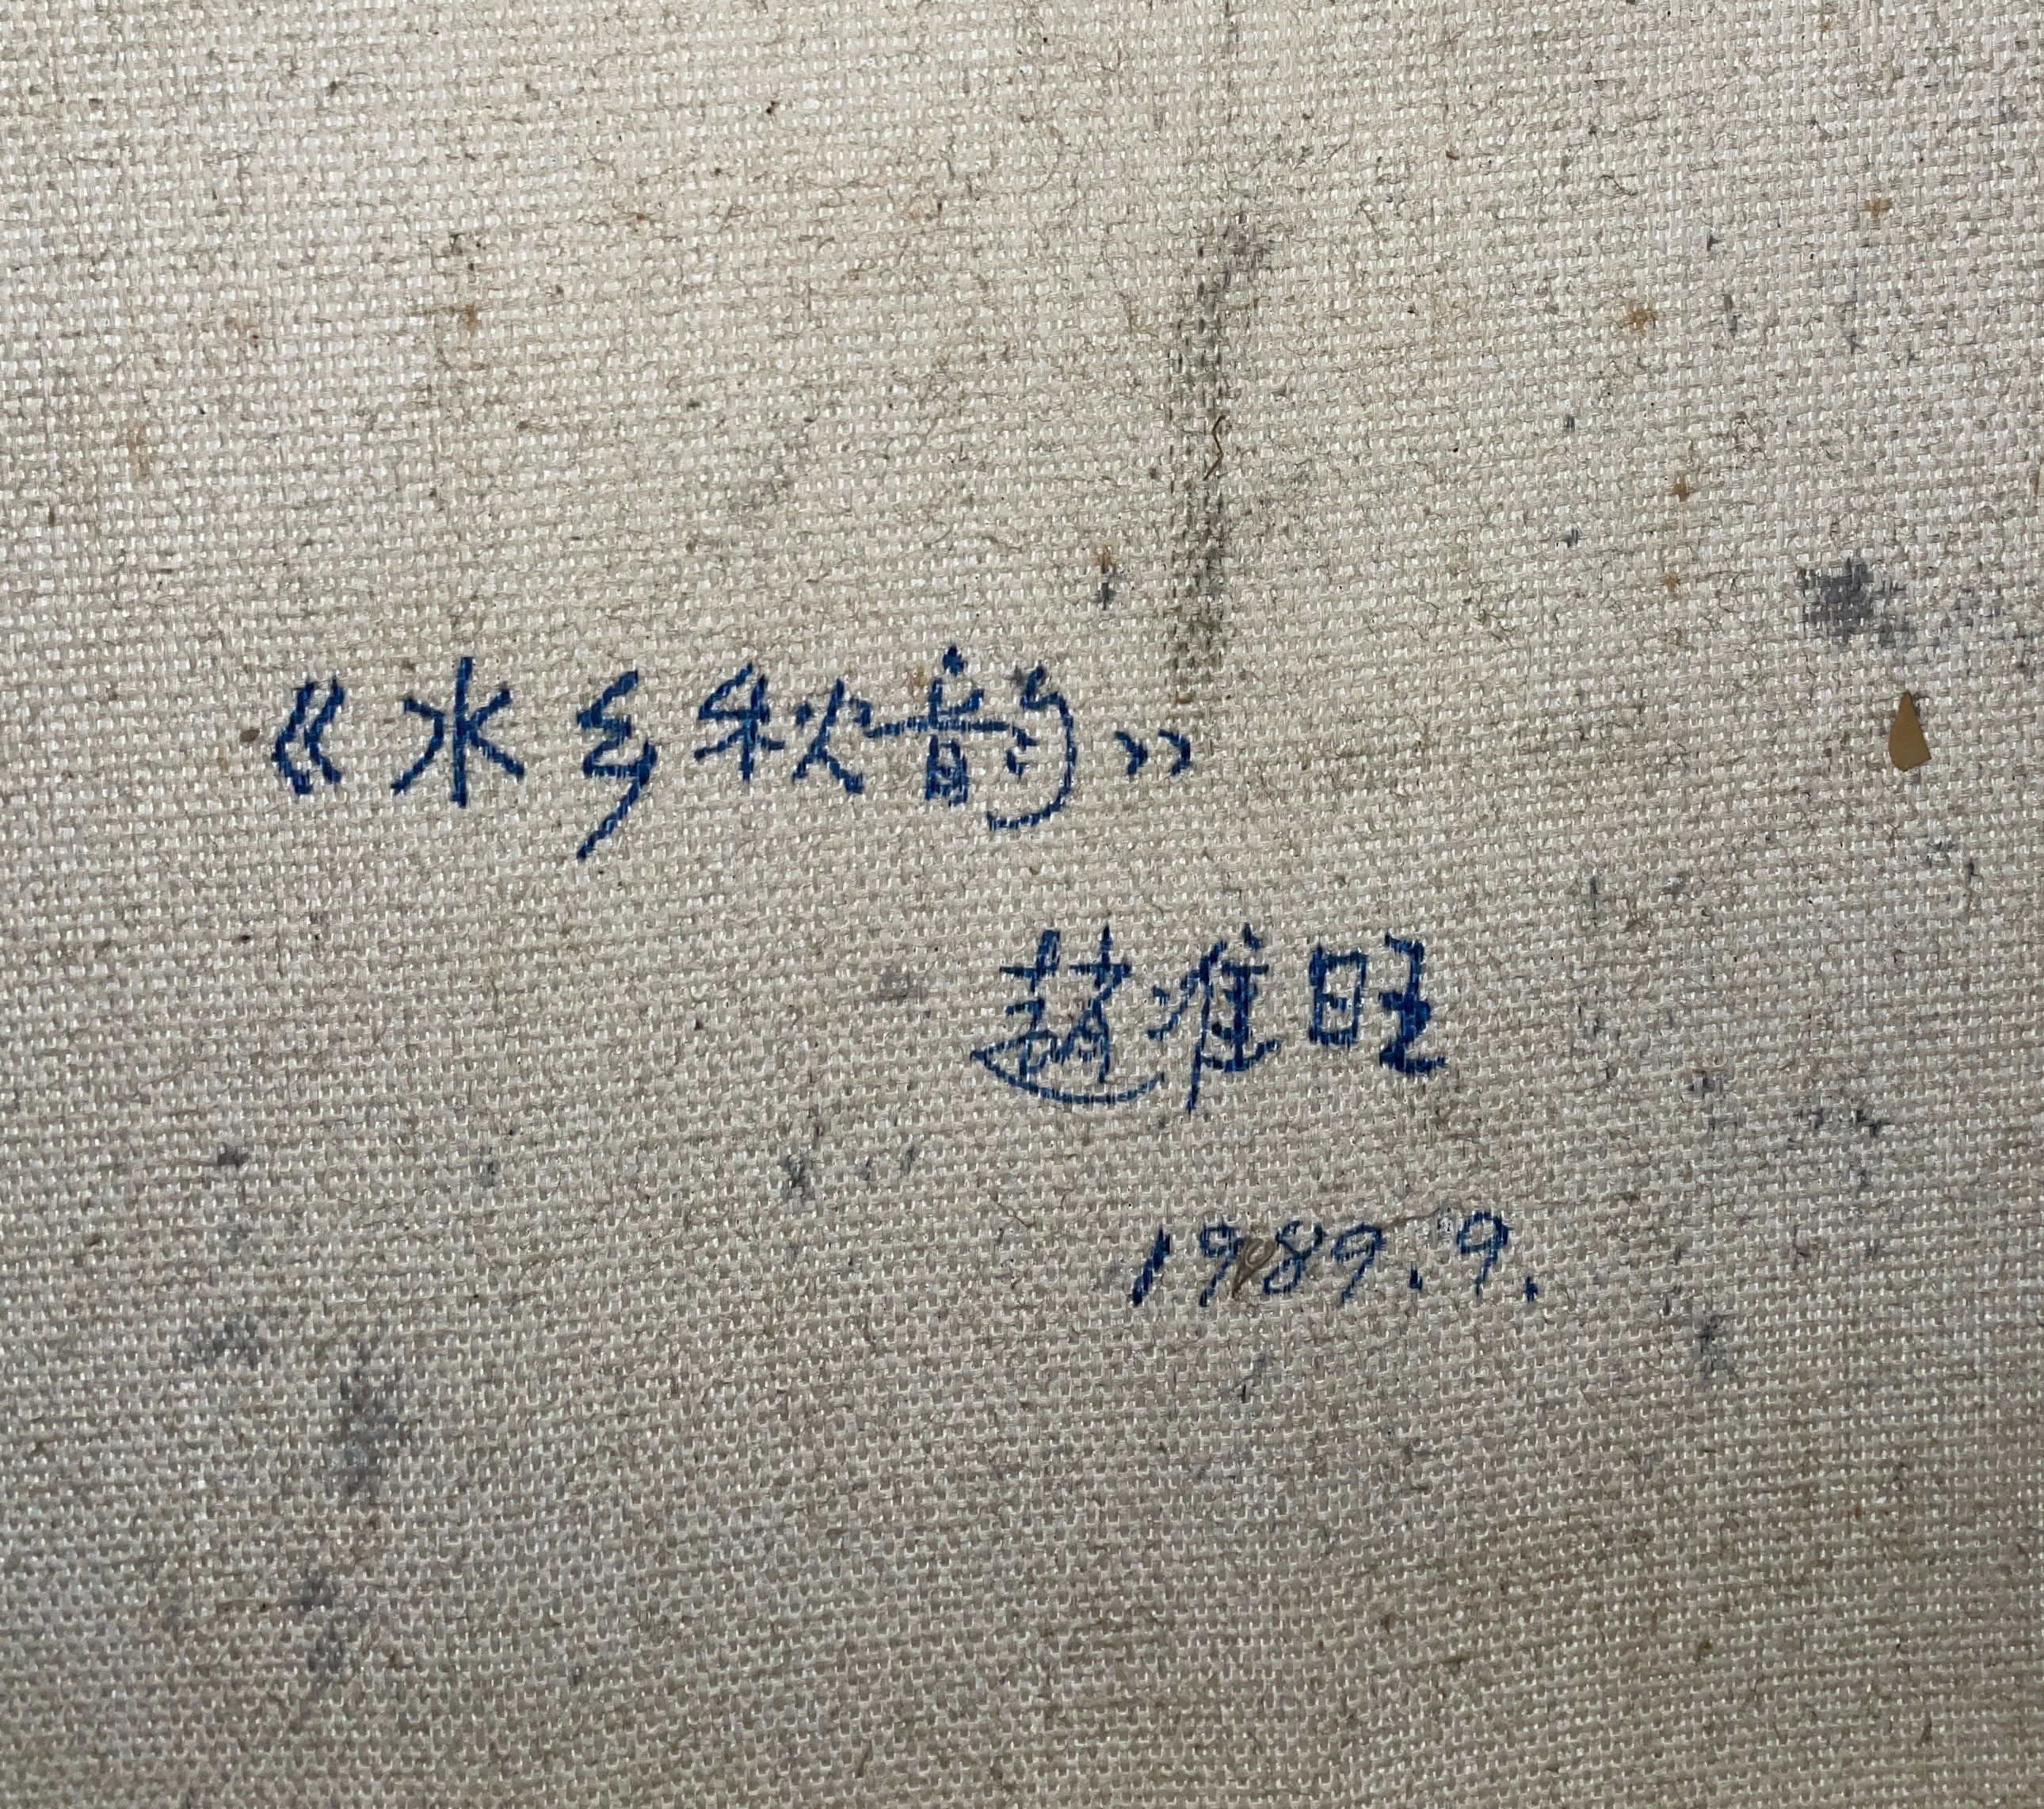 《水乡秋韵》
趙准旺
1989.9.